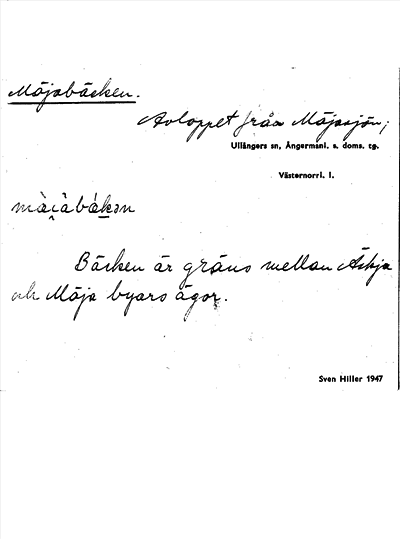 Måjabäcken.
Avloppet från Måjasjön;
Ullångers sn, Ångermanl. s. doms. tg.
Västernorrl. l.
Bäcken är gräns mellan Äskja
och Måja byars ägor.
Sven Hiller 1947